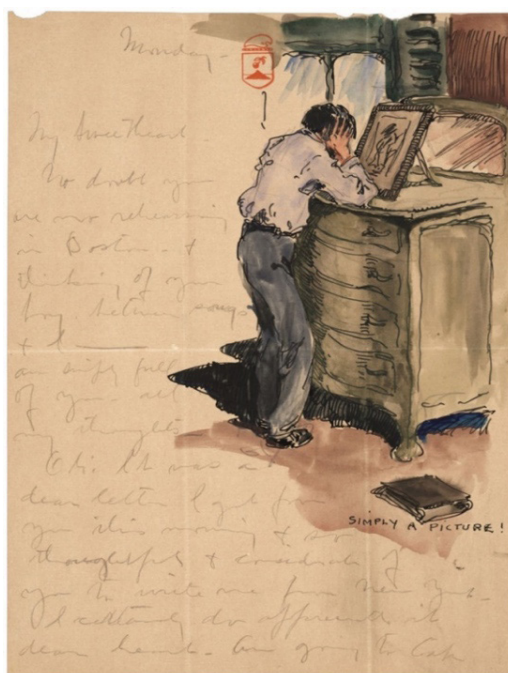 Monday -
My Sweetheart -
No doubt you
are now rehearsing
in Boston - &
thinking of your
boy between songs
& I
am simply full
of you all
my thoughts
Oh! It was a
dear letter I got from
you this morning & so
thoughtful & considerate of
you to write me from New York -
I certainly do appreciate it
dear heart - Am going to
SIMPLY A PICTURE!